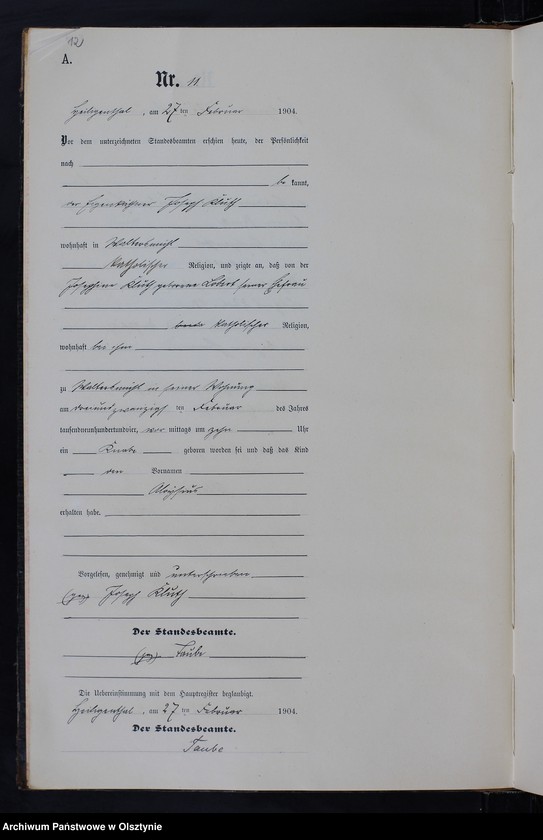 12)
A.
Nr. 11
Heiligenthal, am 27 ten Februar 1904.
Vor dem unterzeichneten Standesbeamten erschien heute, der Persönlichkeit
nach
be kannt,
der Eigenkäthner Joseph Kluth
wohnhaft in Walterbmühl
katholischer Religion, und zeigte an, daß von der
Josephine Kluth geborene Lobert seiner Ehefrau
katholischer Religion,
wohnhaft bei ihm
zu Walterbmühl in seiner Wohnung
am dreiundzwanzigs ten Februar des Jahres
tausendneunhundertundvier, vor mittags um zehn Uhr
ein Knabe geboren worden sei und daß das Kind
den Vornamen
Aloysius
erhalten habe.
Vorgelesen, genehmigt und unterschrieben
(gez) Joseph Kluth
Der Standesbeamte.
(gez). Taube
Die Uebereinstimmung mit dem Hauptregister beglaubigt.
Heiligenthal, am 27 ten Februar 1904.
Der Standesbeamte.
Taube
Archiwum Państwowe w Olsztynie